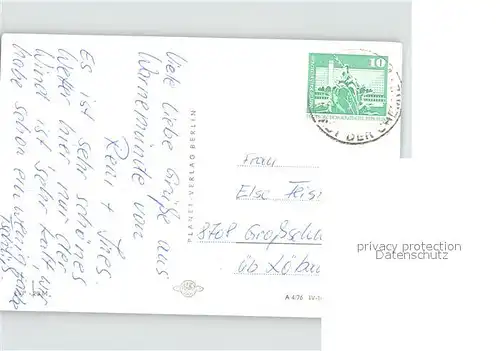 Viele liebe Grüße aus
Warnemünde von
Reni + Ines.
Es ist sehr schönes
Wetter hier nur der
Wind ist sehr kalt, wir
habe schon ein wenig Farbe
PLANET-VERLAG BERLIN
10
DER
Frau
Else
8708 Großsch
üb Löbau
A 4/76
privacy protection
Datenschutz